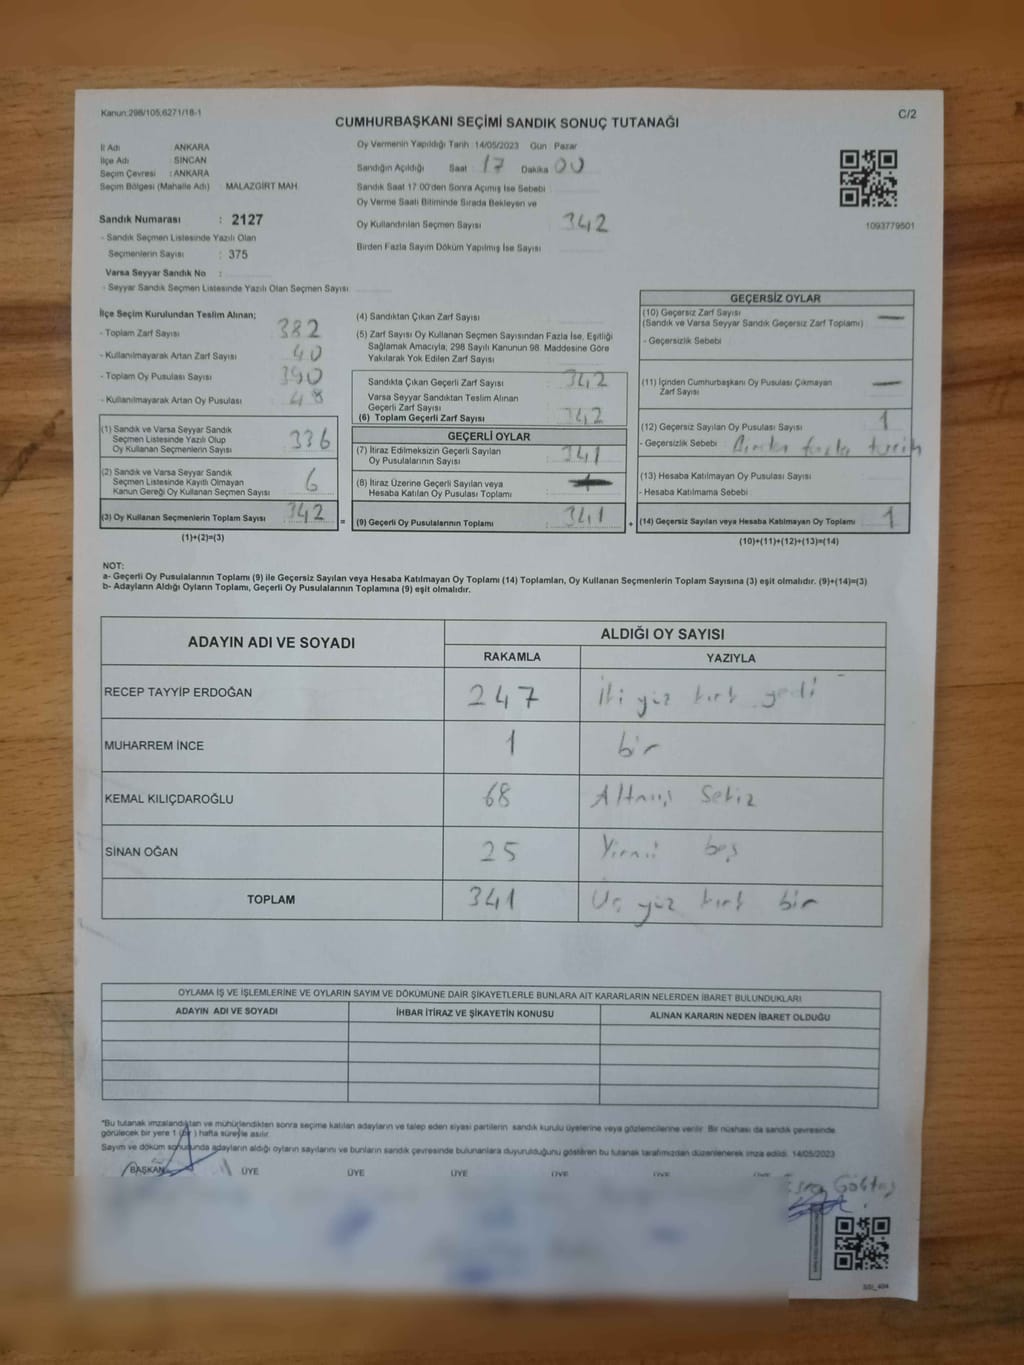 Kanun:298/105,6271/18-1
C/2
CUMHURBAŞKANI SEÇİMİ SANDIK SONUÇ TUTANAĞI
İl Adı ANKARA
İlçe Adı SİNCAN
Seçim Çevresi : ANKARA
Seçim Bölgesi (Mahalle Adı) MALAZGİRT MAH.
Sandık Numarası : 2127
- Sandık Seçmen Listesinde Yazılı Olan
Seçmenlerin Sayısı : 375
Varsa Seyyar Sandık No :
- Seyyar Sandık Seçmen Listesinde Yazılı Olan Seçmen Sayısı
Oy Vermenin Yapıldığı Tarih 14/05/2023 Gün Pazar
Sandığın Açıldığı Saat 17 Dakika 00
Sandık Saat 17.00'den Sonra Açımış İse Sebebi
Oy Verme Saati Bitiminde Sırada Bekleyen ve
Oy Kullandırılan Seçmen Sayısı 342
Birden Fazla Sayım Döküm Yapılmış İse Sayısı
1093779501
İlçe Seçim Kurulundan Teslim Alınan;
- Toplam Zarf Sayısı 382
- Kullanılmayarak Artan Zarf Sayısı 40
- Toplam Oy Pusulası Sayısı 390
- Kullanılmayarak Artan Oy Pusulası 48
(1) Sandık ve Varsa Seyyar Sandık
Seçmen Listesinde Yazılı Olup
Oy Kullanan Seçmenlerin Sayısı 336
(2) Sandık ve Varsa Seyyar Sandık
Seçmen Listesinde Kayıtlı Olmayan
Kanun Gereği Oy Kullanan Seçmen Sayısı 6
(3) Oy Kullanan Seçmenlerin Toplam Sayısı 342 =
(1)+(2)=(3)
(4) Sandıktan Çıkan Zarf Sayısı
(5) Zarf Sayısı Oy Kullanan Seçmen Sayısından Fazla İse, Eşitliği
Sağlamak Amacıyla, 298 Sayılı Kanunun 98. Maddesine Göre
Yakılarak Yok Edilen Zarf Sayısı
Sandıkta Çıkan Geçerli Zarf Sayısı : 342
Varsa Seyyar Sandıktan Teslim Alınan
Geçerli Zarf Sayısı :
(6) Toplam Geçerli Zarf Sayısı : 342
GEÇERLİ OYLAR
(7) İtiraz Edilmeksizin Geçerli Sayılan
Oy Pusulalarının Sayısı : 341
(8) İtiraz Üzerine Geçerli Sayılan veya
Hesaba Katılan Oy Pusulası Toplamı :
(9) Geçerli Oy Pusulalarının Toplamı : 341 +
GEÇERSİZ OYLAR
(10) Geçersiz Zarf Sayısı
(Sandık ve Varsa Seyyar Sandık Geçersiz Zarf Toplamı) —
- Geçersizlik Sebebi
(11) İçinden Cumhurbaşkanı Oy Pusulası Çıkmayan
Zarf Sayısı —
(12) Geçersiz Sayılan Oy Pusulası Sayısı 1
- Geçersizlik Sebebi : Birden fazla tercih
(13) Hesaba Katılmayan Oy Pusulası Sayısı
- Hesaba Katılmama Sebebi
(14) Geçersiz Sayılan veya Hesaba Katılmayan Oy Toplamı 1
(10)+(11)+(12)+(13)=(14)
NOT:
a- Geçerli Oy Pusulalarının Toplamı (9) ile Geçersiz Sayılan veya Hesaba Katılmayan Oy Toplamı (14) Toplamları, Oy Kullanan Seçmenlerin Toplam Sayısına (3) eşit olmalıdır. (9)+(14)=(3)
b- Adayların Aldığı Oyların Toplamı, Geçerli Oy Pusulalarının Toplamına (9) eşit olmalıdır.
ADAYIN ADI VE SOYADI ALDIĞI OY SAYISI
RAKAMLA YAZIYLA
RECEP TAYYİP ERDOĞAN 247 İki yüz kırk yedi
MUHARREM İNCE 1 bir
KEMAL KILIÇDAROĞLU 68 Altmış Sekiz
SİNAN OĞAN 25 Yirmi beş
TOPLAM 341 Üç yüz kırk bir
OYLAMA İŞ VE İŞLEMLERİNE VE OYLARIN SAYIM VE DÖKÜMÜNE DAİR ŞİKAYETLERLE BUNLARA AİT KARARLARIN NELERDEN İBARET BULUNDUKLARI
ADAYIN ADI VE SOYADI İHBAR İTİRAZ VE ŞİKAYETİN KONUSU ALINAN KARARIN NEDEN İBARET OLDUĞU
*Bu tutanak imzalandıktan ve mühürlendikten sonra seçime katılan adayların ve talep eden siyasi partilerin sandık kurulu üyelerine veya gözlemcilerine verilir. Bir nüshası da sandık çevresinde
görülecek bir yere 1 (bir) hafta süreyle asılır.
Sayım ve döküm sonucunda adayların aldığı oyların sayılarını ve bunların sandık çevresinde bulunanlara duyurulduğunu gösteren bu tutanak tarafımızdan düzenlenerek imza edildi. 14/05/2023
BAŞKAN ÜYE ÜYE ÜYE ÜYE ÜYE ÜYE
Esra Göktaş